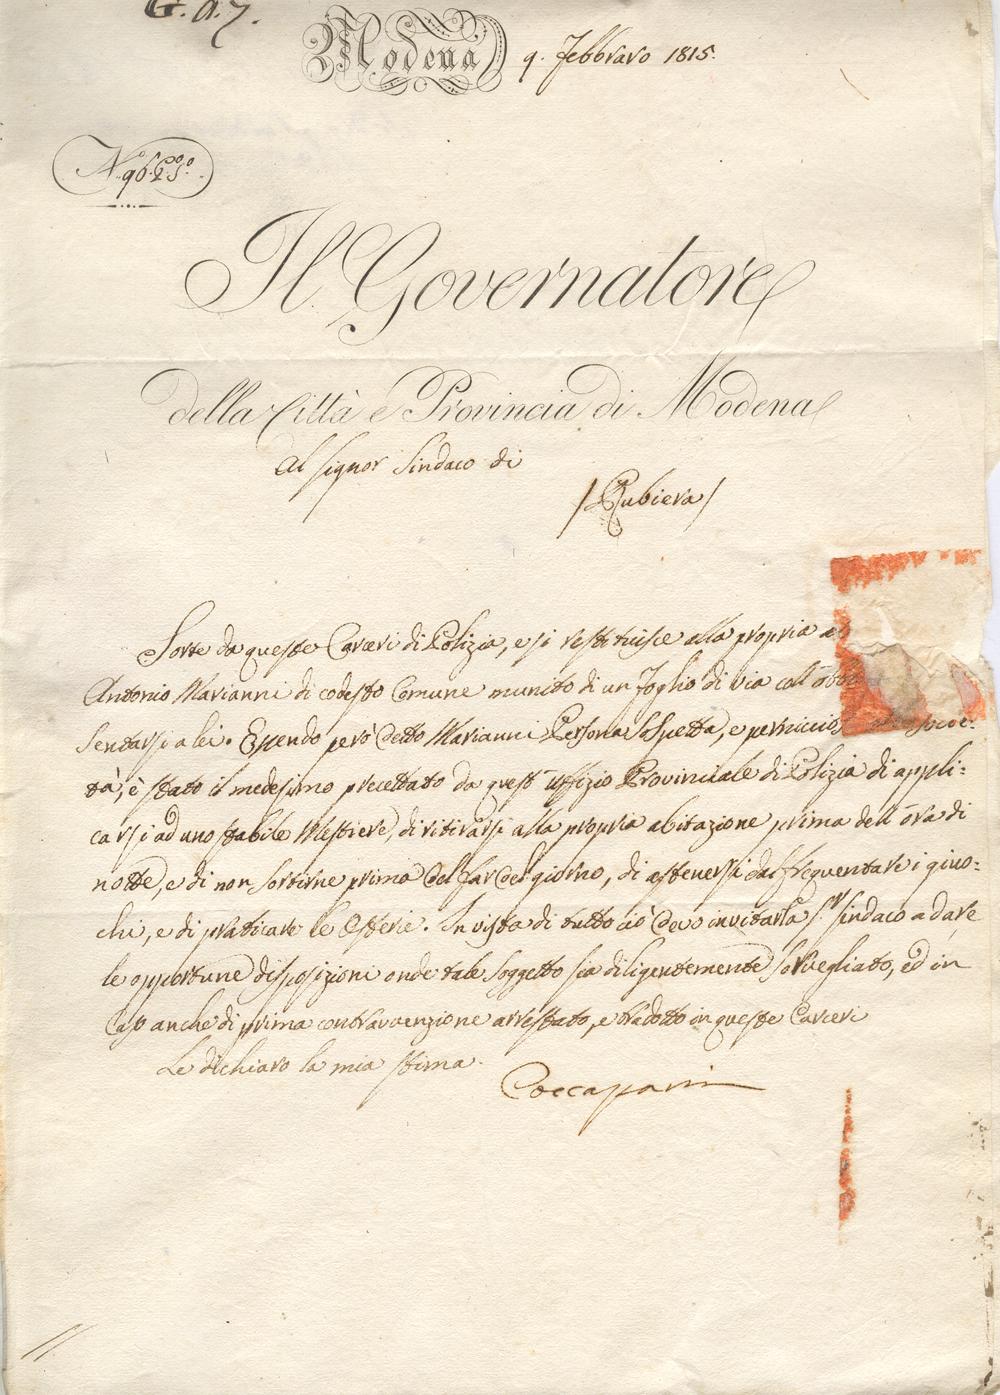 G. a. 7.
Modena 9. Febbraro 1815.
Il Governatore
della Città e Provincia di Modena
Al Signor Sindaco di
/Rubiera/
Sorte da queste Carceri di Polizia, e si restituisce alla propria
Antonio Marianni di codesto Comune munito di un foglio di via coll'
sentarsi a lei. Essendo però detto Marianni Persona Sospetta, e pernicios socie=
tà, è stato il medesimo precettato da quest' uffizio Provinciale di Polizia di appli=
carsi ad uno stabile Mestiere, di ritirarsi alla propria abitazione prima dell' ōra di
notte, e di non sortirne prima del far del giorno, di astenersi dal frequentare i giuo=
chi, e di praticare le Osterie. In vista di tutto ciò devo invitarla Sig.r Sindaco a dare
le opportune disposizioni onde tale Soggetto sia diligentemente sorvegliato, ed in
caso anche di prima contravvenzione arrestato, e tradotto in queste Carceri
Le dichiaro la mia stima.
Coccapani